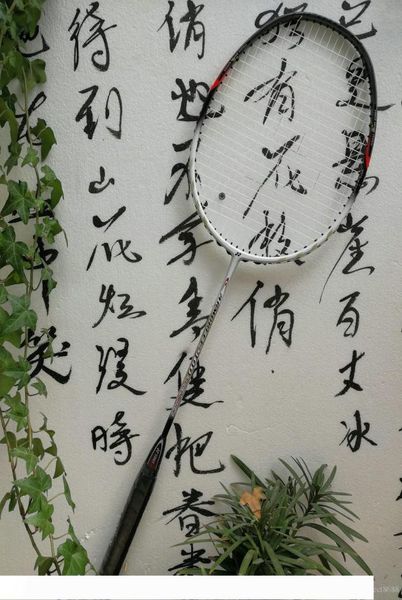 已是悬崖百丈冰
犹有花枝俏
俏也不争春只把春来
待到山花烂漫時
她在丛中笑